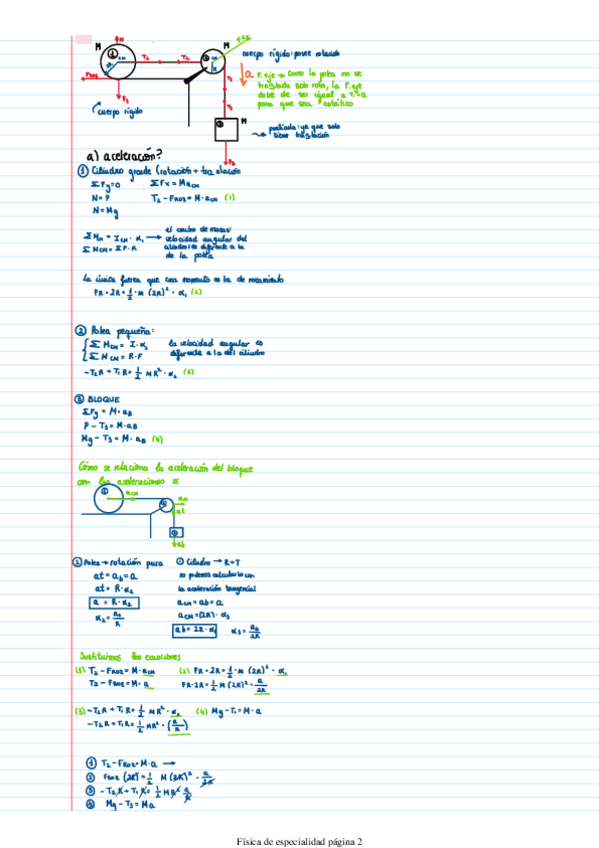 cuerpo rígido: posee rotación
a F. eje → como la polea no se
traslada solo rota, la F. eje
debe de ser igual a
para que sea estático
cuerpo rígido
partícula: ya que solo
tiene traslación
a) aceleración?
① Cilindro grande (rotación + traslación
ΣFy=0 ΣFx = M·aCM
N = P T₂ - FROZ = M·aCM (1)
N = Mg
ΣMCM = ICM · α₁ →
ΣMCM = ΣF·R
el centro de masas:
velocidad angular del
cilindro es diferente a la
de la polea
La única fuerza que crea momento es la de rozamiento
FR·2R = 1/2 · M (2R)² · α₁ (2)
② Polea pequeña:
ΣMCM = I·α₂
ΣMCM = R·F
la velocidad angular es
diferente a la del cilindro
-T₂R + T₁R = 1/2 MR² · α₂ (3)
③ BLOQUE
ΣFy = M·aB
P - T₃ = M·aB
Mg - T₃ = M·aB (4)
Cómo se relaciona la aceleración del bloque
con las aceleraciones α
② Polea → rotación pura ① Cilindro → R+T
at = ab = a no podemos calcularlo con
at = R·α₂ la aceleración tangencial
a = R·α₂ aCM = ab = a
aCM = (2R)·α₁
ab = 2R·α₁
Sustituimos las ecuaciones
(1) T₂ - FROZ = M·aCM (2) FR·2R = 1/2 · M (2R)² · α₁
T₂ - FROZ = M·a FR·2R = 1/2 M (2R)² · a/2R
(3) -T₂R + T₁R = 1/2 MR² · α₂ (4) Mg - T₁ = M·a
-T₂R + T₁R = 1/2 MR² · (a/R)
① T₂ - FROZ = M·a →
② FROZ (2R) = 1/2 M(2R)² · a/2R
③ -T₂R + T₁R = 1/2 MR² a/R
④ Mg - T₃ = Ma
Física de especialidad página 2